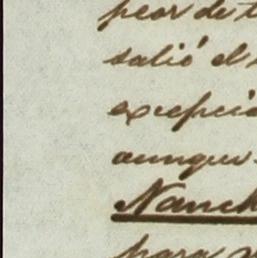 peor de t
salió el
excepció
aunque
Nanch
para